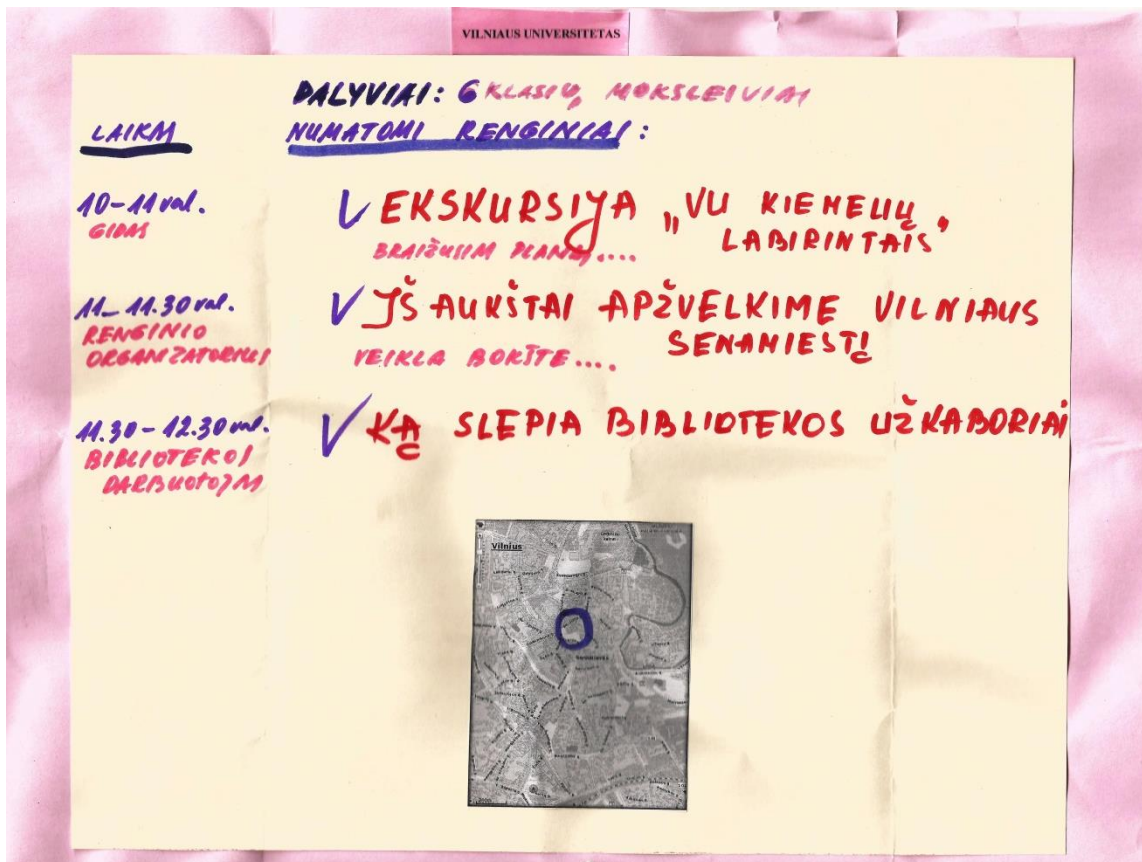 VILNIAUS UNIVERSITETAS
DALYVIAI: 6 KLASIŲ, MOKSLEIVIAI
LAIKAS
NUMATOMI RENGINIAI:
10-11 val.
GIDAS
V EKSKURSIJA „VU KIEMELIŲ
LABIRINTAIS“
BRAIŽYSIM PLANĄ....
11-11.30 val.
RENGINIO
ORGANIZATORIUS
V IŠ AUKŠTAI APŽVELKIME VILNIAUS
SENAMIESTĮ
VEIKLA BOKŠTE....
11.30-12.30 val.
BIBLIOTEKOS
DARBUOTOJAS
V KĄ SLEPIA BIBLIOTEKOS UŽKABORIAI
Vilnius